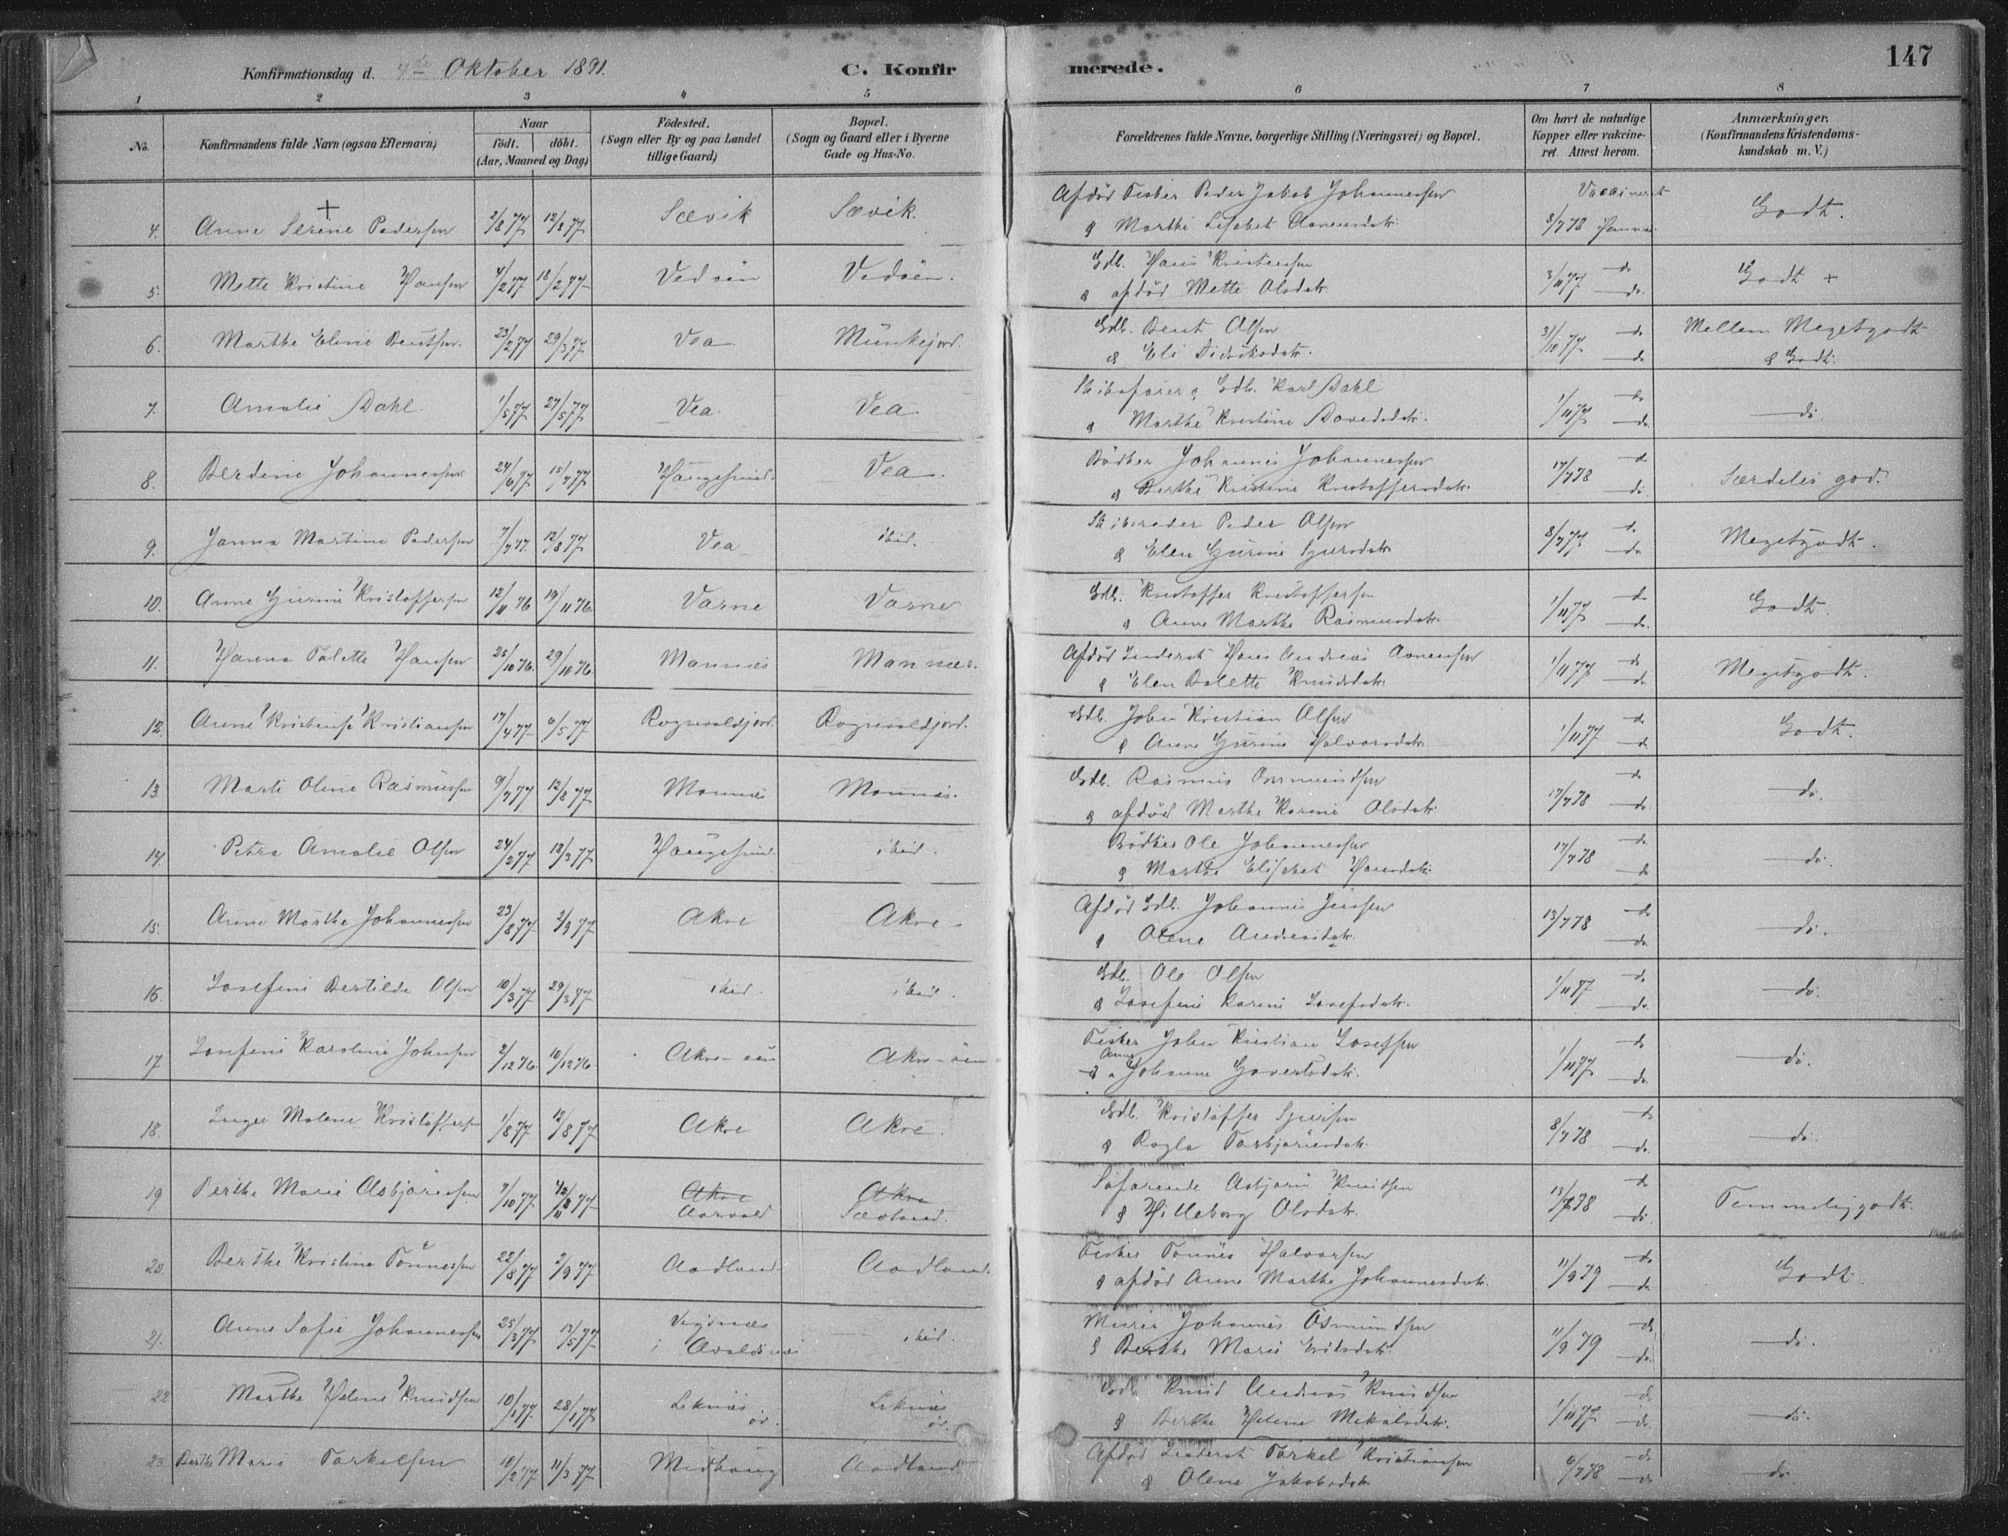 147
Konfirmationsdag d. 4de Oktober 1891. C. Konfirmerede.
1 2 3 4 5 6 7 8
No. Konfirmandens fulde Navn (ogsaa Efternavn) Naar födt. döbt. (Aar, Maaned og Dag) Födested. (Sogn eller By og paa Landet tillige Gaard) Bopæl. (Sogn og Gaard eller i Byerne Gade og Hus-No. Forældrenes fulde Navne, borgerlige Stilling (Næringsvei) og Bopæl. Om havt de naturlige Kopper eller vakcineret. Attest herom. Anmærkninger. (Konfirmandens Kristendomskundskab m. V.)
+ Afdød Fisker Peder Jakob Johannessen Vaccineret
4. Anne Serine Pedersen 2/8 77 12/8 77 Sævik Sævik. & Marthe Lisabet 8/7 78 Godt.
5. Mette Kristine Hansen 4/2 77 18/2 77 Vedøen Vedøen. Gdb. Hans Kristensen 3/11 77 do Godt +
& afdød Mette Olsdatr. do
6. Marthe Eline Bentsen 23/2 77 29/3 77 Vea Munkejord. Gdb. Bent Olsen 3/11 77 do Mellem Megetgodt
& Eli Didriksdatr. do & Godt.
7. Amalie Dahl. 1/5 77 27/5 77 Vea. Vea. Skibsfører & Gdb. Karl Dahl 1/11 77 do do.
& Marthe Kristine Davidsdatr. do
8. Berdine Johannessen 24/6 77 15/7 77 Haugesund. Vea. Bødker Johannes Johannessen 17/7 78 do Særdeles god.
& Berthe Kristine Kristoffersdatr. do
9. Janna Martine Pedersen 7/7 77. 12/8 77 Vea ibid. Skibsreder Peder Olsen 8/7 77. do Megetgodt.
& Elen Gurine Sjursdatr. do
10. Anne Gurine Kristoffersen 12/11 76 19/11 76. Varne Varne Gdb. Kristoffer Kristoffersen 1/11 77 do Godt.
& Anne Marthe Rasmusdatr. do.
11. Hanna Talette Hansen 25/10 76. 29/10 76. Mannæs Mannæs. Afdød Inderst Hans Andreas 1/11 77 do Megetgodt.
& Elen Dalette Knudsdatr. do
12. Anne Kristense Kristiansen 17/4 77 6/5 77 Rognevaldjord. Rognevaldjord. Gdb. John Kristian Olsen 1/11 77 do Godt.
& Anne Gurine Halvorsdatr. do
13. Marte Oline Rasmussen 9/7 77 12/8 77 Mannæs Mannæs. Gdb. Rasmus Ommundsen 17/7 78 do do.
& afdød Marthe Karine Olsdatr. do.
14. Petra Amalie Olsen 24/2 77 18/3 77 Haugesund ibid. Bødker Ole Johannessen 17/7 78 do do.
& Marthe Elisabet Hansdatr. do
15. Anne Marthe Johannessen 23/8 77 2/9 77 Akre Akre. Afdød Gdb. Johannes Jensen 13/7 78 do do.
& Olene Andreasdatr. do
16. Josefine Bertilde Olsen 10/3 77 29/3 77 ibid. ibid. Gdb. Ole Olsen 1/11 77 do do.
& Josefine Karine Josefsdatr. do.
17. Josefine Karoline Johnsen 2/12 76. 10/12 76 Akre-øen Akre-øen Fisker John Kristian Josefsen 1/11 77 do do.
Anne
& Johanne Govertsdatr. do.
18. Inger Malene Kristoffersen 1/8 77 12/8 77 Akre Akre. Gdb. Kristoffer Sjursen 8/7 78 do do.
& Ragla Torbjørnsdatr. do.
19 Berthe Marie Asbjørnsen 7/10 77 Akre Akre Søfarende Asbjørn Knudsen 13/7 78 do Temmelig godt.
Aarvold Sævland. & Hilleborg Olsdatr. do.
20. Berthe Kristine Tønnessen 22/8 77 2/9 77 Aadland Aadland. Fisker Tønnes Halvorsen 11/9 79 do Godt.
& afdød Anne Marthe Johannesdatr. do.
21. Anne Sofie Johannessen 25/3 77 13/5 77 Vigsnæs ibid. Murer Johannes Osmundsen 11/9 79 do do.
i Avaldsnæs & Berthe Marie Eriksdatr. do.
22 Marthe Helene Knudsen 10/1 77. 28/1 77 Liknæs Liknæs Gdb. Knud Andreas Knudsen 1/11 77 do do.
ør. ør. & Berthe Helene Mikalsdatr. do.
23. Berthe Marie Torkelsen 10/2 77 11/3 77 Midhaug Aadland Afdød Inderst Torkel Kristiansen 6/7 78 do do.
& Olene Jakobsdatr. do